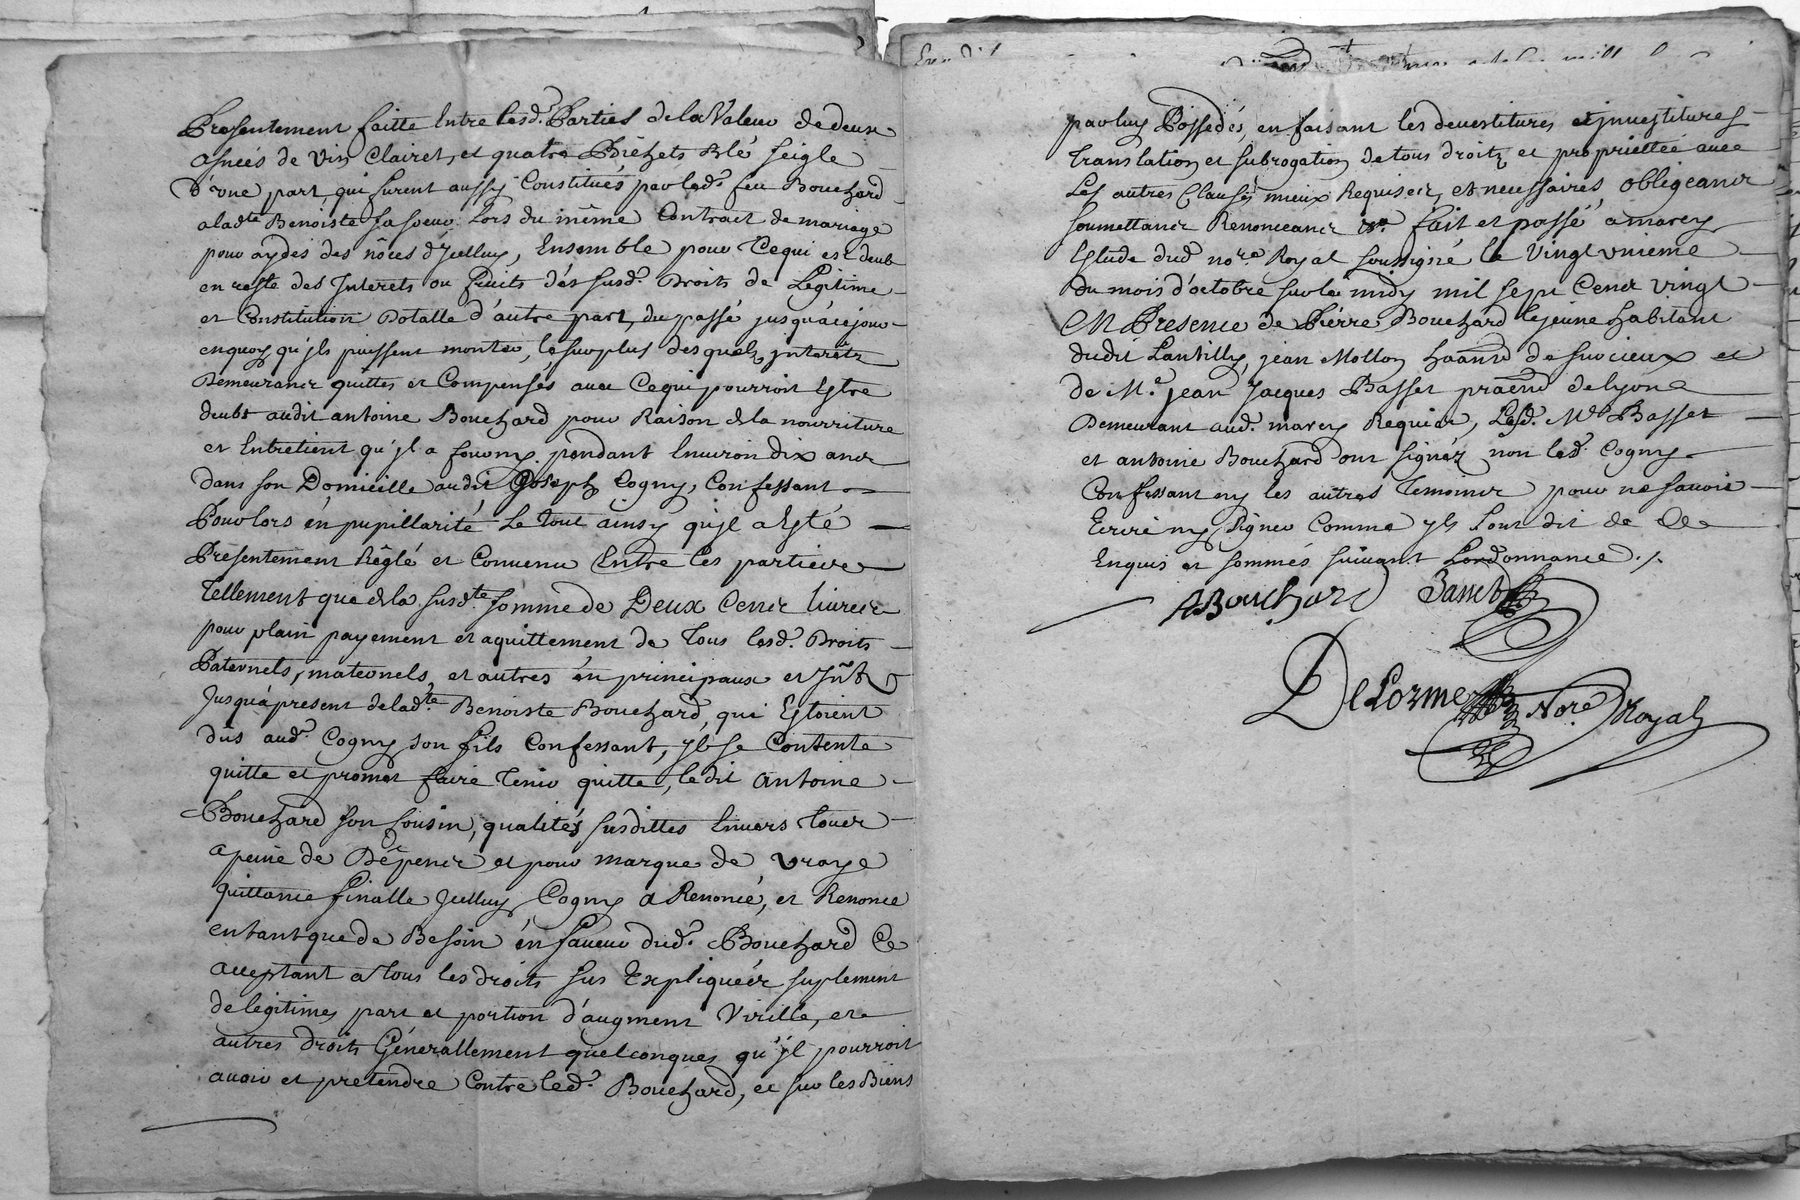 Presentement faitte Entre lesd. Parties de la Valeur de deux
asnées de vin Clairet, et quatre Bichets Blé seigle
d'une part, qui furent aussy Constitués par led. feu Bouchard
a ladte Benoiste sa soeur Lors du même Contrat de mariage
pour aydes des nôces d'Jcelluy, Ensemble pour Cequi est deub
en reste des Jnterets ou fruits dés susd. Droits de Légitime
et Constitution Dotalle d'autre part, du passé jusqu'àcejour
enquoy qu'jls puissent monter, le surplus desquels jnterêts
Demeurants quittes et Compensés avec Cequi pourroit Estre
deubt audit antoine Bouchard pour Raison de la nourriture
et Entretient qu'jl a fourny pendant Environ dix ans
dans son Domicille audit Joseph Cogny, Confessant
Pour lors en pupillarité Le tout ainsy qu'jl a Esté
Présentement Réglé et Convenu Entre les parties
Tellement que de la susdte somme de Deux Cents livres
pour plain payement et aquittement de Tous lesd. Droits
Paternels, maternels, et autres en principaux et Jnts
Jusqu'àpresent de ladte Benoiste Bouchard, qui Estoient
dûs aud. Cogny son fils Confessant, jl se Contente
quitte et promet faire Tenir quitte, ledit Antoine
Bouchard son Cousin, qualités susdittes Envers Tous
apeine de Dépens et pour marque de vraye
quittance finalle Jcelluy Cogny a Renoncé, et Renonce
entant que de Besoin en faveur dud. Bouchard Ce
acceptant a Tous les droits sus Expliqués suplement
de legitimes part et portion d'augment Virille, et
autres droits Génerallement quelconques qu'jl pourroit
avoir et pretendre Contre led. Bouchard, et sur les Biens
par luy Possedés, en faisant les devestitures et jnvestitures
Translation et subrogation de tous droits et propriettée avec
Les autres Clauses mieux Requises, et necessaires, obligeants
soumettants Renonceants &a fait et passé a marcy
Estude dud. nore Royal soussigné le vingt unieme
du mois d'octobre sur le midy mil sept Cent vingt
En Presence de Pierre Bouchard le jeune habitant
dudit Lantilly, jean Mollon de surcieux et
de Me. jean Jacques Basset de lyon
Demeurant aud. marcy Requis, Lesd. Me Basset
et antoine Bouchard ont signéz non led. Cogny
Confessant ny les autres Temoins pour ne savoir
Ecrire ny signer Comme jls l'ont dit de Ce
Enquis et sommés suivant Lordonnance ./.
ABouchard
DeLorme Nore Royal